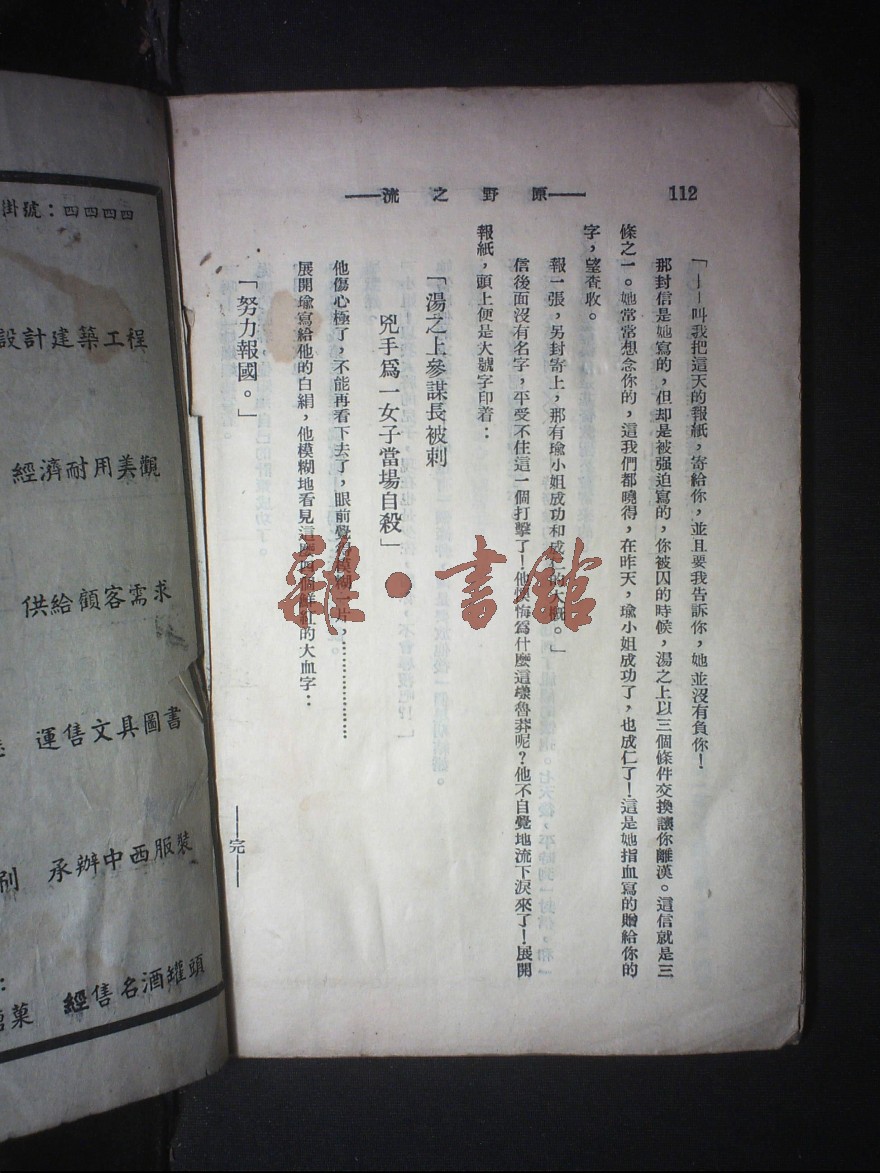 112
——原野之流——
「——叫我把這天的報紙，寄給你，並且要我告訴你，她並沒有負你！
那封信是她寫的，但却是被强迫寫的，你被囚的時候，湯之上以三個條件交換讓你離漢。這信就是三
條之一。她常常想念你的，這我們都曉得，在昨天，瑜小姐成功了，也成仁了！這是她指血寫的贈給你的
字，望查收。
報一張，另封寄上，那有瑜小姐成功和成仁的大概。」
信後面沒有名字，平受不住這一個打擊了！他懊悔爲什麼這樣魯莽呢？他不自覺地流下淚來了！展開
報紙，頭上便是大號字印着：
「湯之上參謀長被刺
兇手爲一女子當場自殺」
他傷心極了，不能再看下去了，眼前覺得模糊一片，………………
展開瑜寫給他的白絹，他模糊地看見這麼四個鮮紅的大血字：
「努力報國。」
——完——
掛號：四四四四
設計建築工程
經濟耐用美觀
供給顧客需求
運售文具圖書
刷 承辦中西服裝
菓 經售名酒罐頭
雜·書館